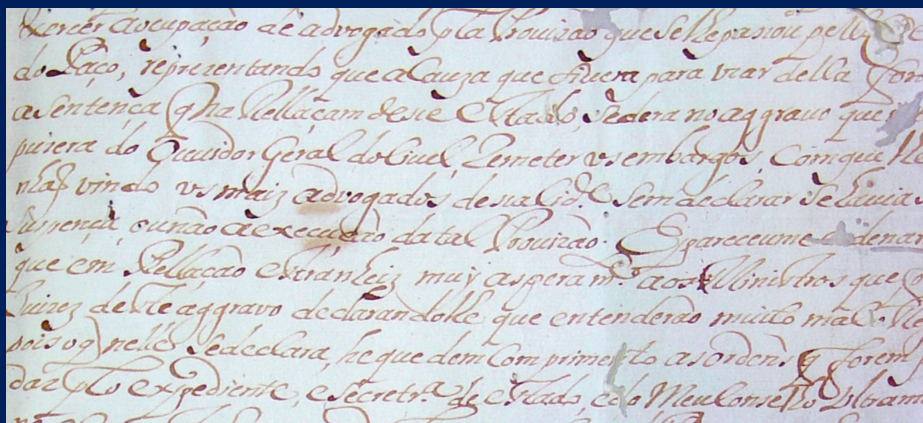 exercer a ocupação de advogado pla Provizão que se lhe pasou pello
do Paço, reprezentando que a Cauza que tivera para uzar della for
a sentença q̃ na Rellaçam desse Estado, se dera no aggravo que
puzera do Ouvidor Geral do Civel Remeter os embargos, Com que
vindo os maiz advogados, desa Cid.e sem declarar se havia
ou não a execução da tal Provizão. E pareceume
que em Rellação estranheiz muy aspera m.te aos Ministros que
Juizez deste aggravo declarandolhe que entenderão muito mal.
pois o q̃ nelle se declara, he que dem Comprimento as ordens q̃ forem
plo expediente, e Secretr.a de Estado, e do Meu Conselho Ultram